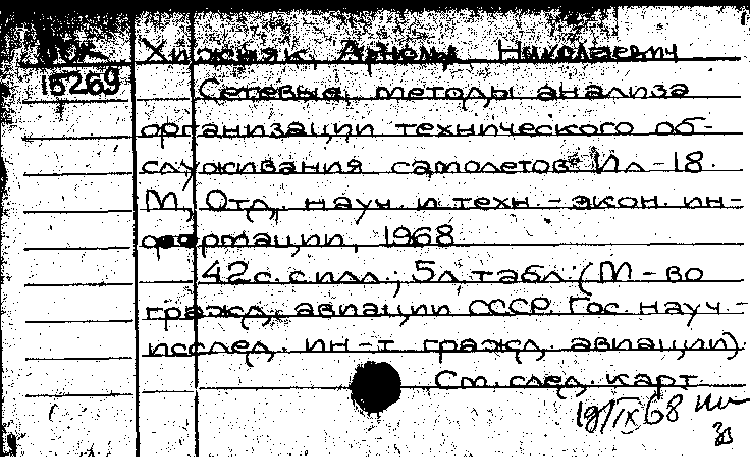 Хижняк, Арнольд Николаевич
15269
Сетевые методы анализа
организации технического об-
служивания самолетов Ил-18.
М, Отд. науч. и техн.-экон. ин-
формации, 1968
42 с. с илл.; 5 л. табл. (М-во
гражд. авиации СССР. Гос. науч.-
исслед. ин-т гражд. авиации).
См. след. карт
19/IX 68